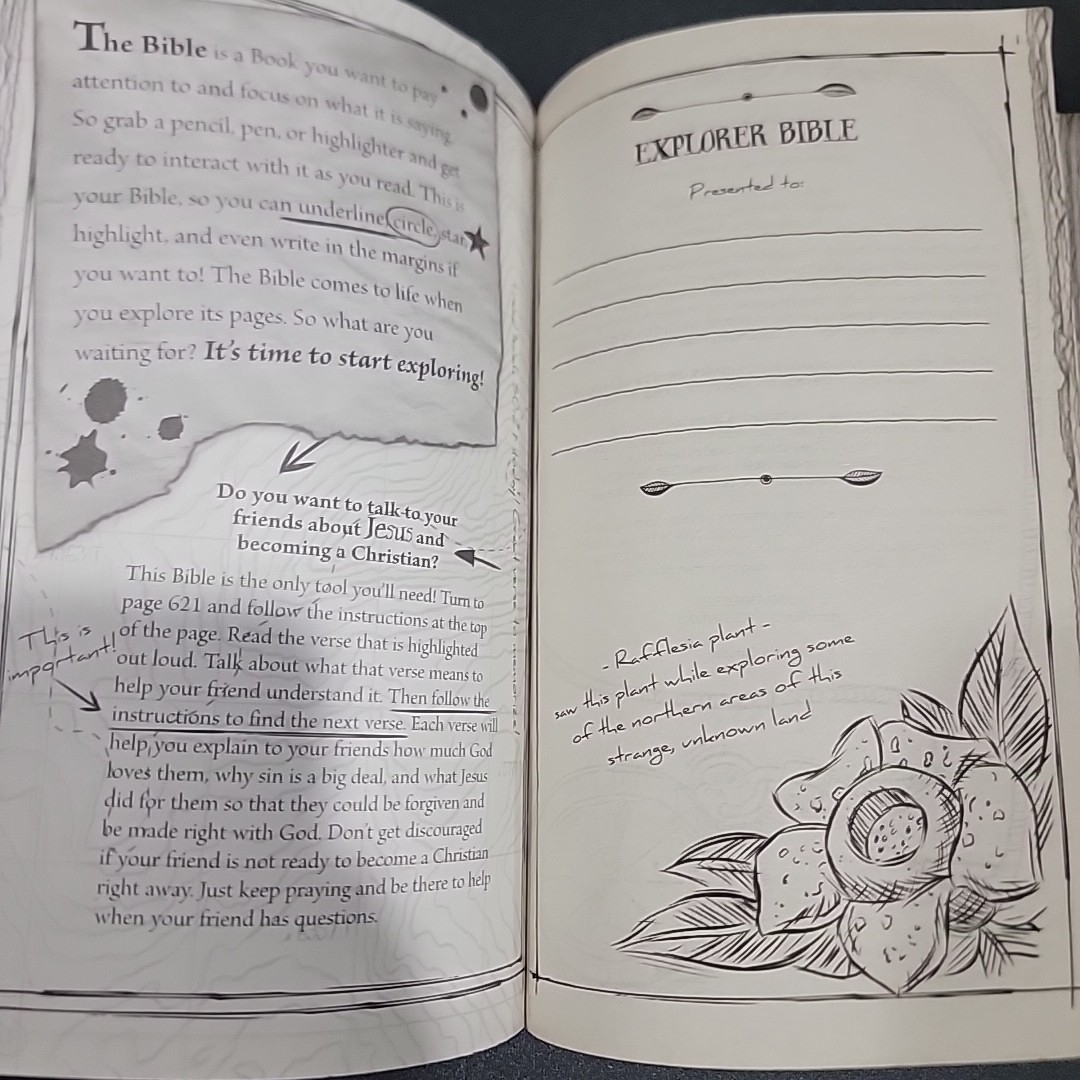 The Bible is a Book you want to pay
attention to and focus on what it is saying.
So grab a pencil, pen, or highlighter and get
ready to interact with it as you read. This is
your Bible, so you can underline, circle, star,
highlight, and even write in the margins if
you want to! The Bible comes to life when
you explore its pages. So what are you
waiting for? It's time to start exploring!
Do you want to talk to your
friends about Jesus and
becoming a Christian?
This Bible is the only tool you'll need! Turn to
page 621 and follow the instructions at the top
of the page. Read the verse that is highlighted
out loud. Talk about what that verse means to
help your friend understand it. Then follow the
instructions to find the next verse. Each verse will
help you explain to your friends how much God
loves them, why sin is a big deal, and what Jesus
did for them so that they could be forgiven and
be made right with God. Don't get discouraged
if your friend is not ready to become a Christian
right away. Just keep praying and be there to help
when your friend has questions.
This is
important!
EXPLORER BIBLE
Presented to:
- Rafflesia plant -
saw this plant while exploring some
of the northern areas of this
strange, unknown land